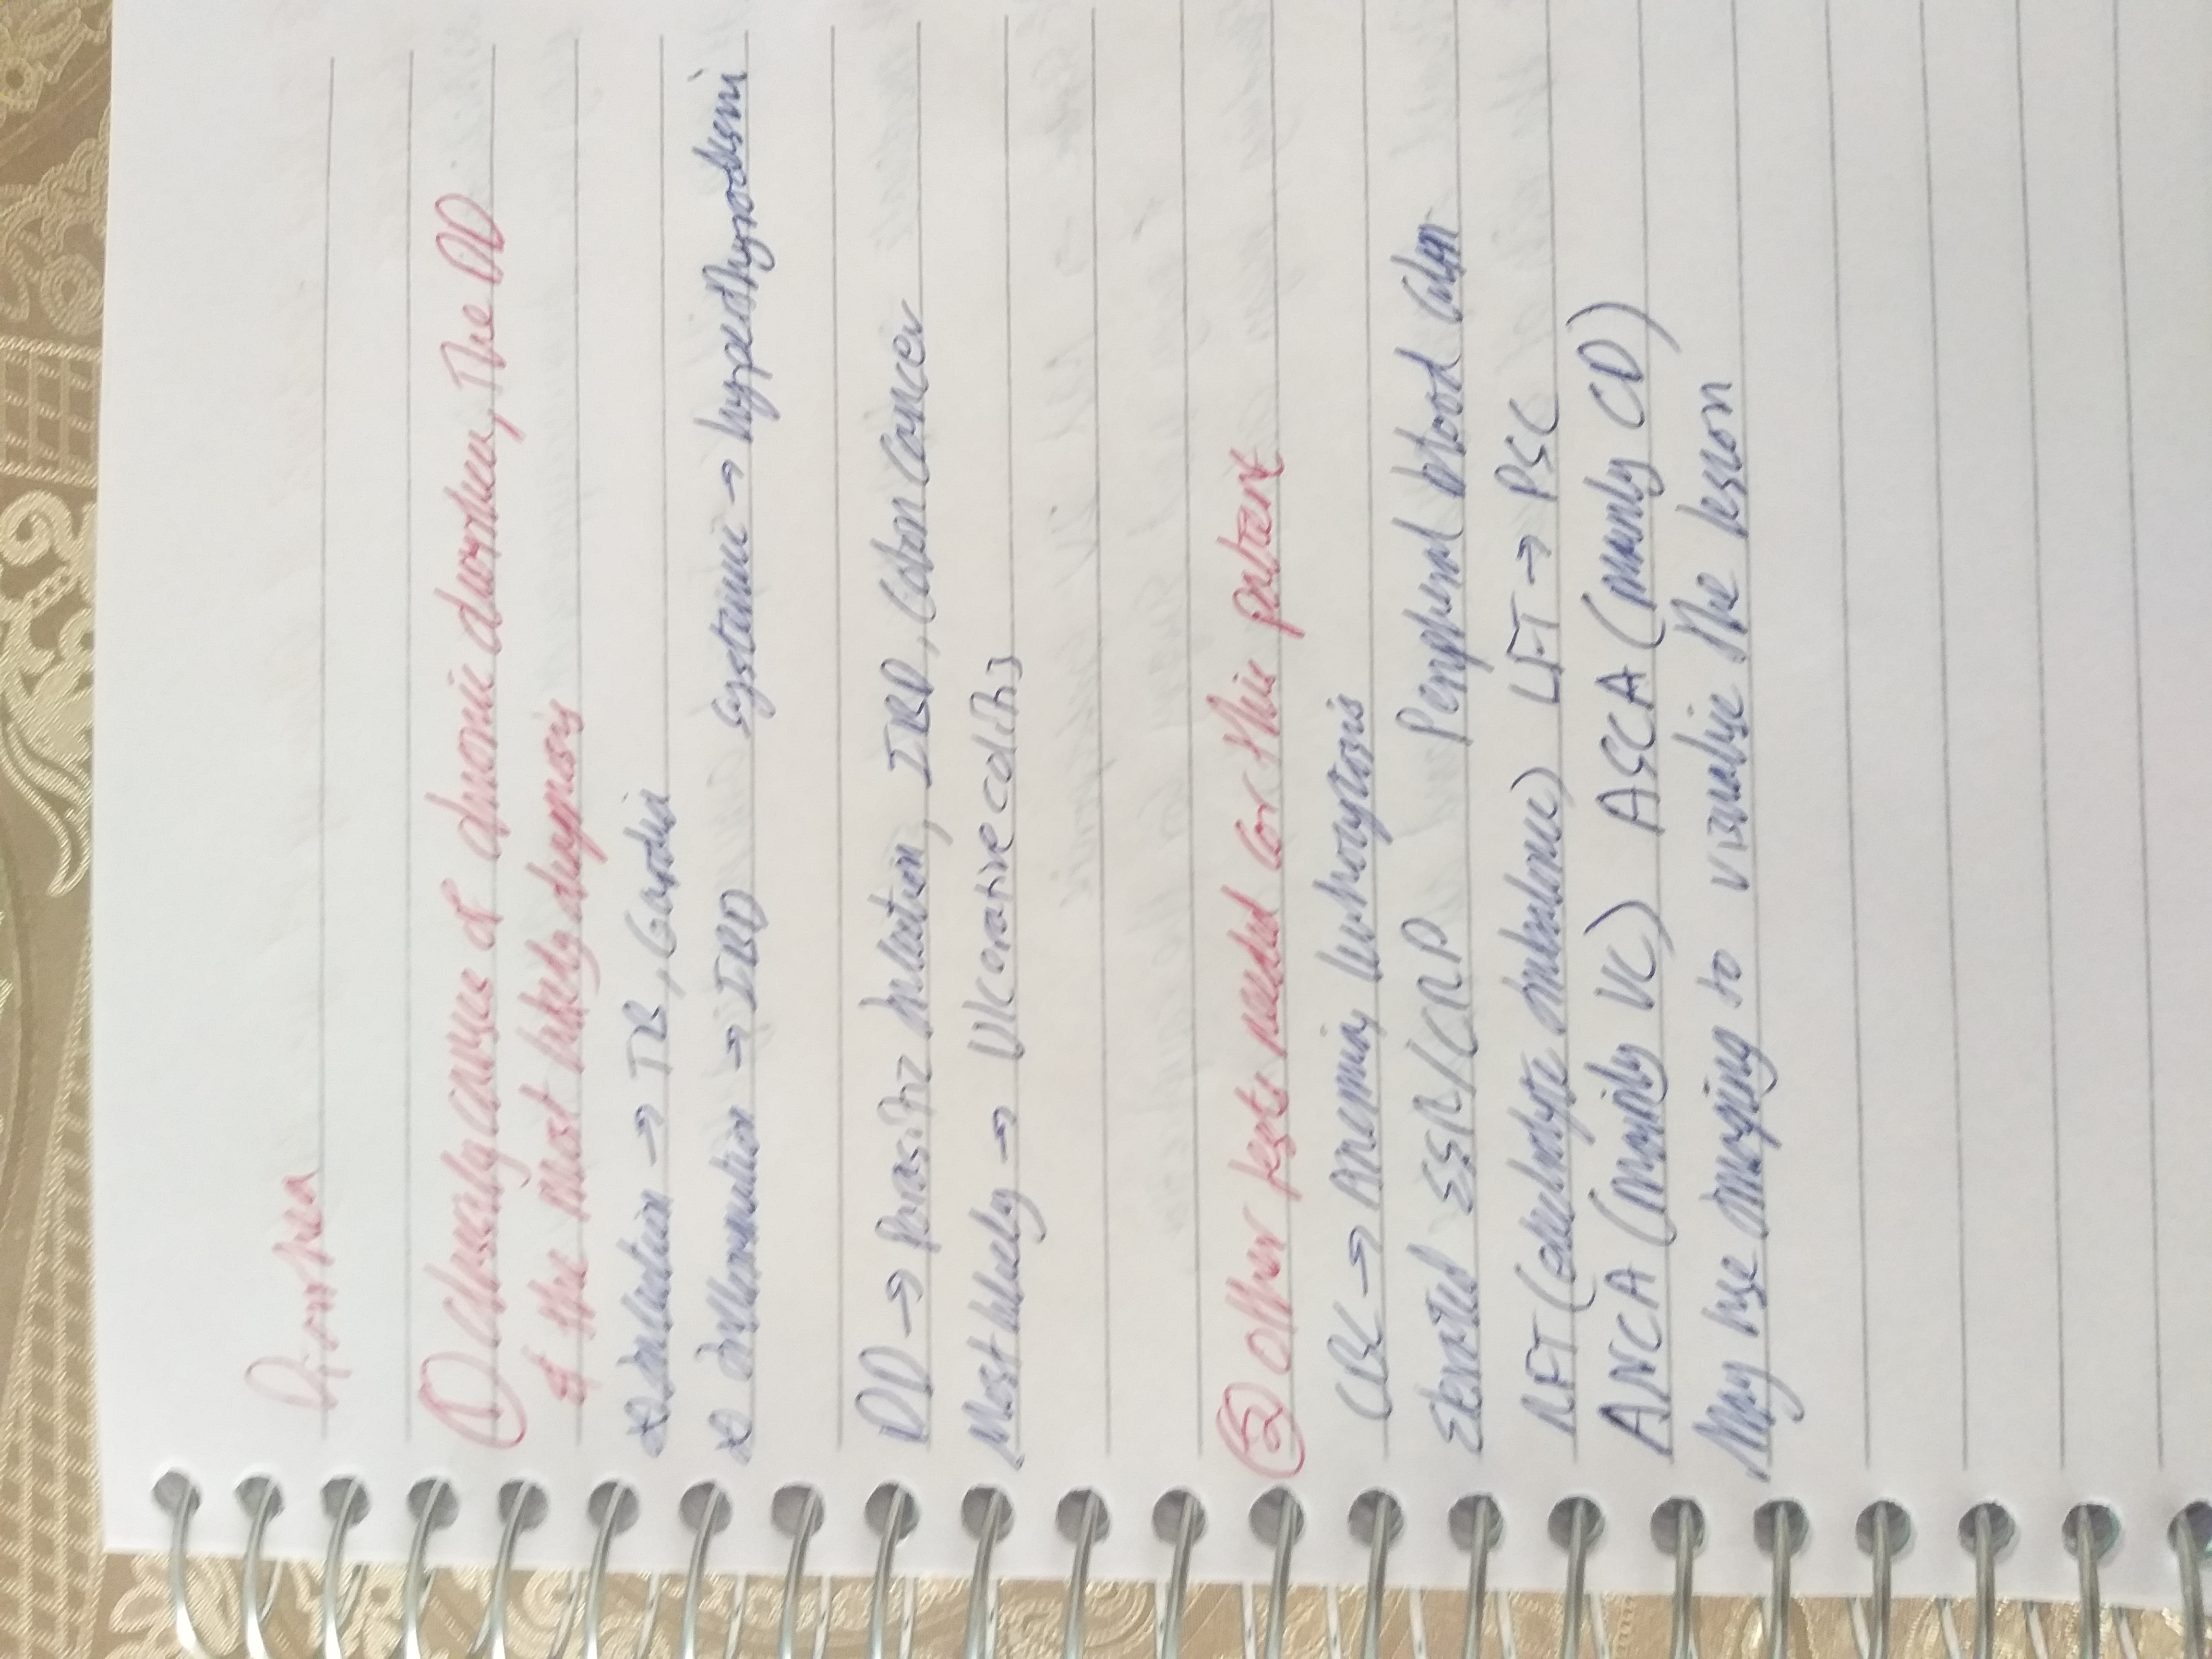 Diarrhea
① Classify causes of chronic diarrhea, The DD
& the most likely diagnosis
* infection → TB, Giardia
* inflammation → IBD Systemic → hyperthyroidism
DD → Parasitic infection, IBD, Colon Cancer
Most likely → Ulcerative colitis
② Other tests needed for this patient
CBC → Anemia, leukocytosis
Elevated ESR/CRP Peripheral blood film
RFT (electrolyte imbalance) LFT → PSC
ANCA (mainly UC) ASCA (mainly CD)
May use imaging to visualise the lesion